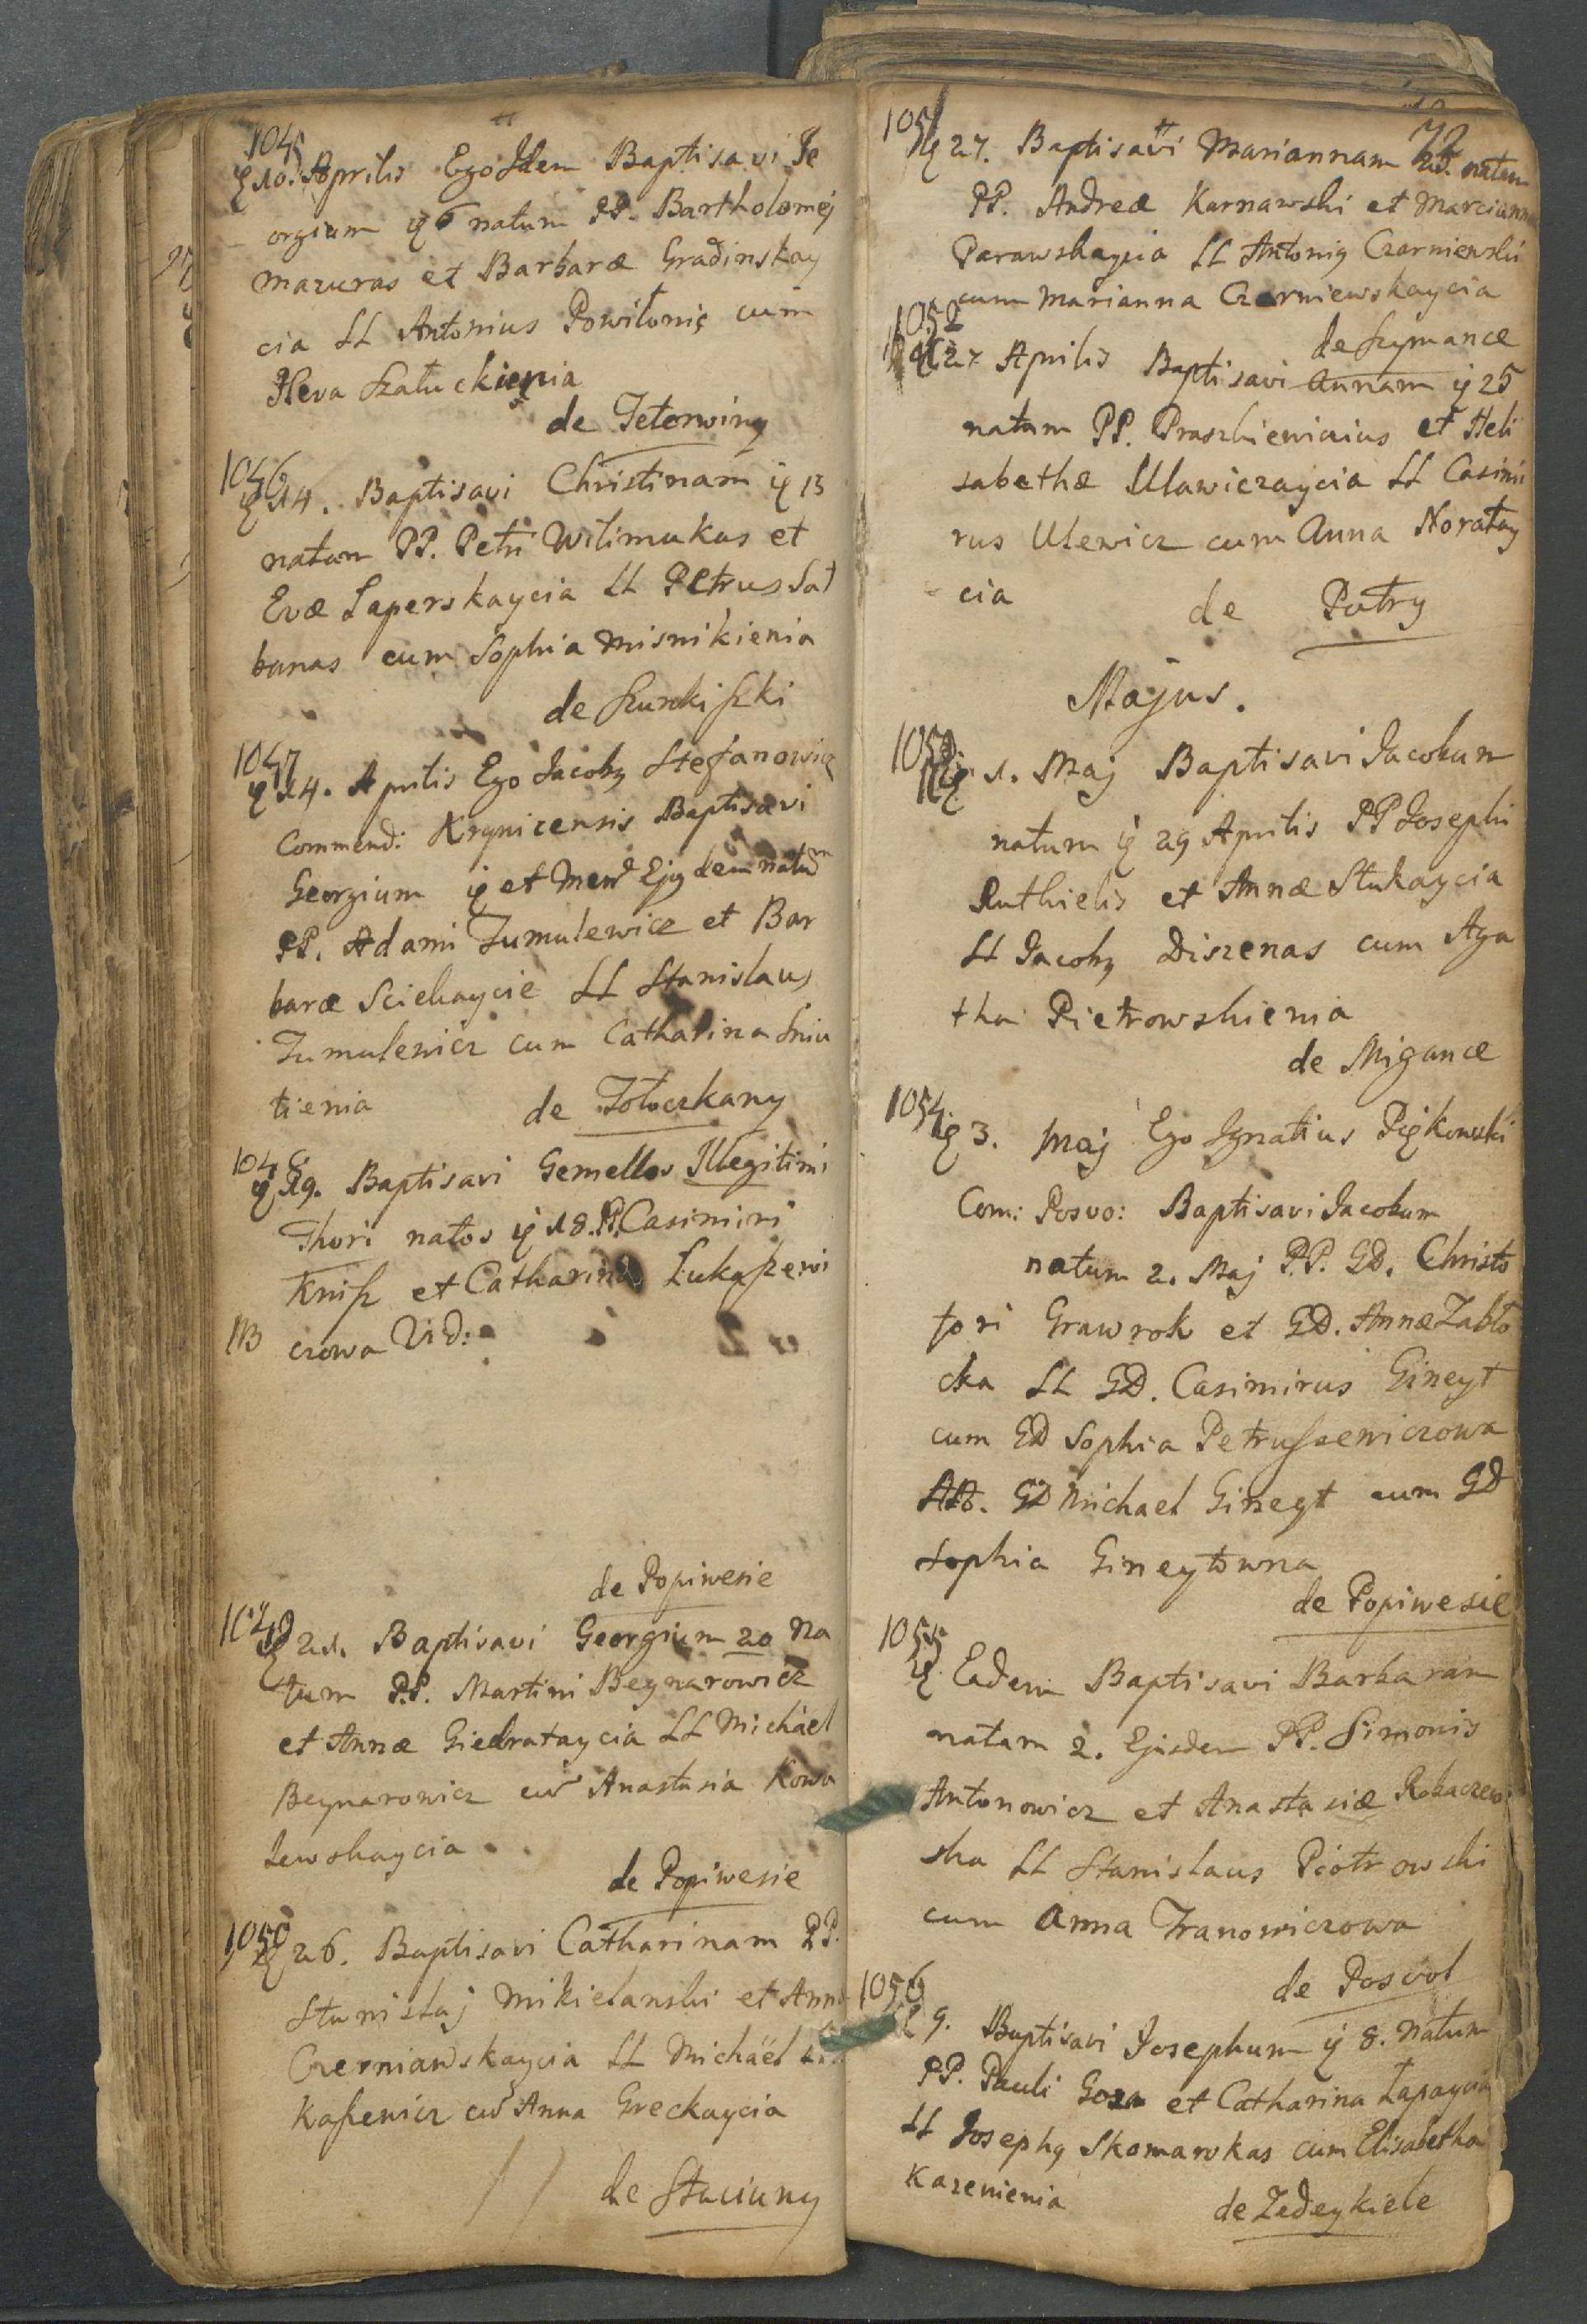 1045
10. Aprilis Ego Idem Baptisavi Ge
orgium 6 natum PP. Bartholomej
Mazuras et Barbaræ Gradinskay
cia LL Antonius Powiłonis cum
Heva Szałuckienia
de Tetorwiny
1046
14. Baptisavi Christinam 13
natam PP. Petri Wilimukas et
Evæ Saperskaycia LL Petrus Sat
banas cum Sophia Misnikienia
de Szurkiszki
1047
14. Aprilis Ego Jacobus Stefanowicz
Commend: Krynicensis Baptisavi
Georgium et Mens Ejusdem natum
PP. Adami Tumulewicz et Bar
baræ Sciekaycie LL Stanislaus
Tumulewicz cum Catharina Sniu
tienia de Tołoczkany
1048
19. Baptisavi Gemellos Illegitimi
Thori natos 18. PP. Casimiri
Knisz et Catharina Lukaszewi
NB czowa Vid:
de Popiwesie
1049
21. Baptisavi Georgium 20 Na
tum P.P. Martini Beynarowicz
et Annæ Giedrataycia LL Michael
Beynarowicz cum Anastasia Kowa
lewskaycia
de Popiwesie
1050
26. Baptisavi Catharinam PP.
Stanislaj Mikielanski et Anna
Czerniawskaycia LL Michaël
Kaszewicz cum Anna Greckaycia
de Staciuny
72
1051
27. Baptisavi Mariannam 25. natam
PP. Andreæ Karnawski et Marcianna
Parawskaycia LL Antonius Czarniewski
cum Marianna Czerniewskaycia
de Szymance
1052
27 Aprilis Baptisavi Annam 25
natam PP. Praszkiewicius et Heli
sabethæ Ulawiczaycia LL Casimi
rus Ulewicz cum Anna Noratay
cia de Putry
Majus.
1053
1. Maj Baptisavi Jacobum
natum 29 Aprilis PP Josephi
Ruthielis et Annæ Stukaycia
LL Jacobus Diszenas cum Aga
tha Pietrowskienia
de Migance
1054
3. Maj Ego Ignatius Piękowski
Com: Posvo: Baptisavi Jacobum
natum 2. Maj P.P. GD. Christo
fori Grawrok et GD. Annæ Zabło
cka LL GD. Casimirus Gineyt
cum GD Sophia Petruszewiczowa
Ass. GD Michael Gineyt cum GD
Sophia Gineytowna
de Popiwesie
1055
Eadem Baptisavi Barbaram
natam 2. Ejusdem PP. Simonis
Antonowicz et Anastasiæ Rokaczew
ska LL Stanislaus Piotrowski
cum Anna Iwanowiczowa
de Posvol
1056
9. Baptisavi Josephum 8. Natum
PP. Pauli Goza et Catharina Łapaycia
LL Josephus Skomarokas cum Elisabetha
Kazenienia de Zedeykiele